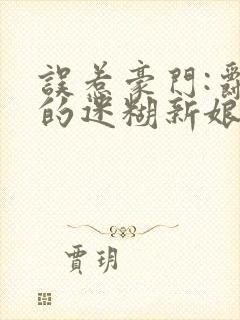 誤惹豪門:
的迷糊新娘
賈玥